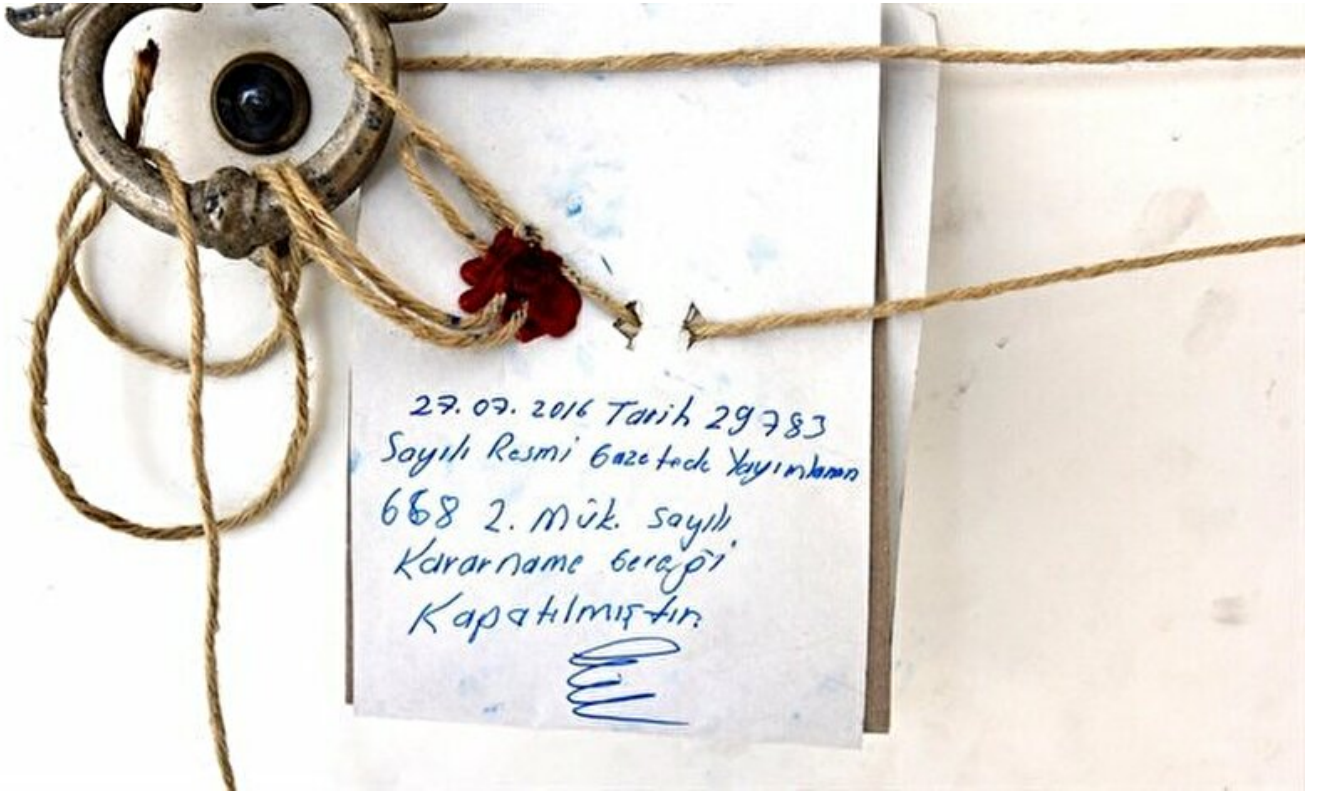 27.07.2016 Tarih 29783
Sayılı Resmi Gazetede Yayımlanan
668 2. Mük. Sayılı
Kararname Gereği
Kapatılmıştır.